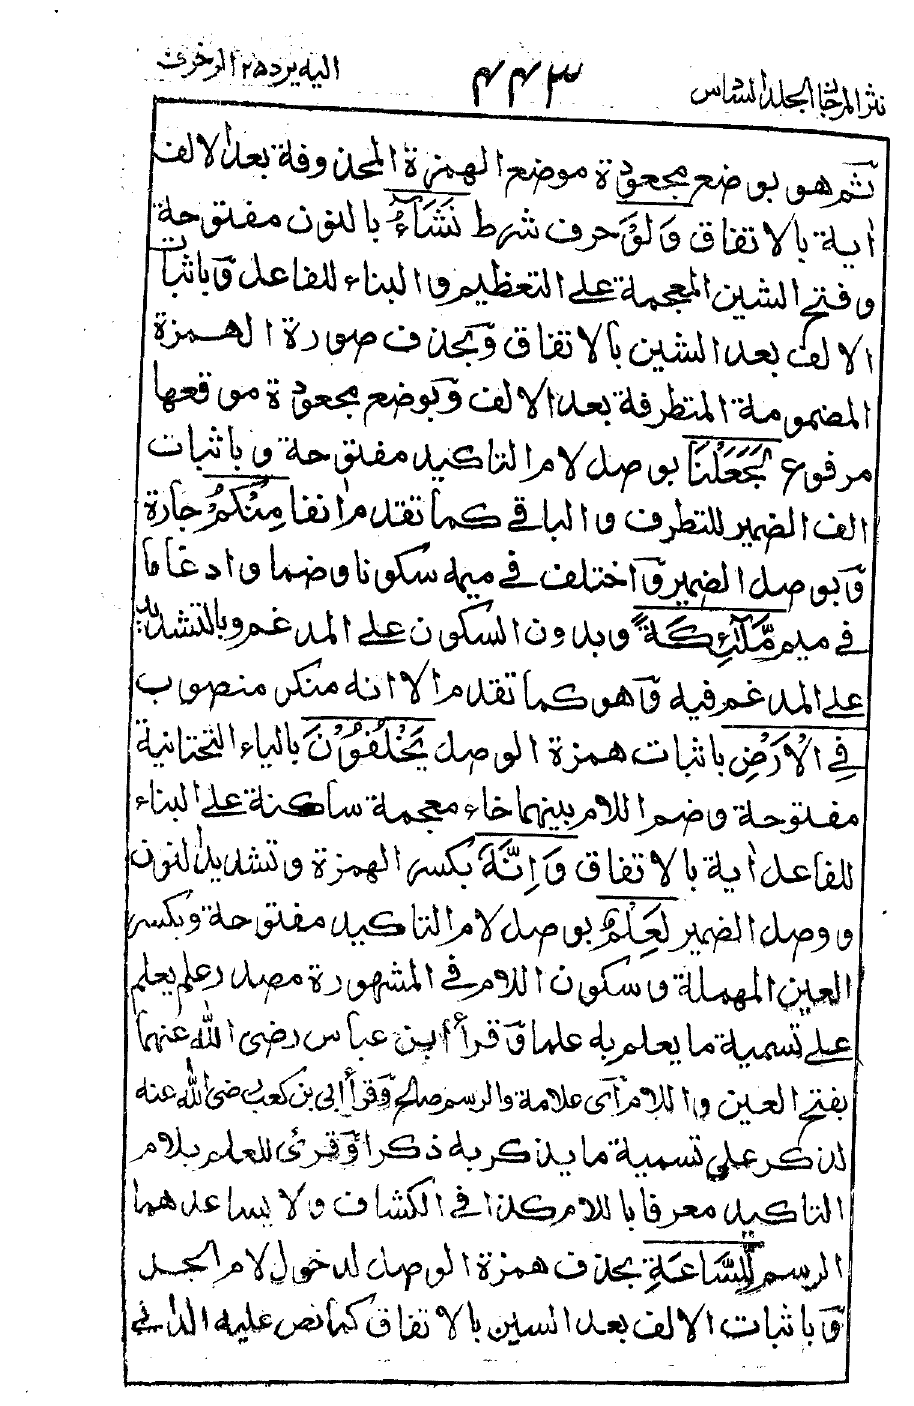 نثر المرجان المجلد السادس ٤٤٣ اليه يرد ٢٥ الزخرف
ثم هو بوضع مجعودة موضع الهمزة المحذوفة بعد الالف
اية بالاتفاق وَلَوْ حرف شرط نَشَآءُ بالنون مفتوحة
وفتح الشين المعجمة على التعظيم والبناء للفاعل وباثبات
الالف بعد الشين بالاتفاق وبحذف صورة الهمزة
المضمومة المتطرفة بعد الالف وبوضع مجعودة موقعها
مرفوع لَجَعَلْنَا بوصل لام التاكيد مفتوحة وباثبات
الف الضمير للتطرف والباقي كما تقدم انفا مِنْكُمْ جارة
وبوصل الضمير واختلف في ميمه سكونا وضما وادغاما
في ميم مَّلٰٓئِكَةً وبدون السكون على المدغم وبالتشديد
على المدغم فيه وهو كما تقدم الا انه منكر منصوب
فِي الْاَرْضِ باثبات همزة الوصل يَخْلُفُوْنَ بالياء التحتانية
مفتوحة وضم اللام بينهما خاء معجمة ساكنة على البناء
للفاعل اية بالاتفاق وَاِنَّهٗ بكسر الهمزة وتشديد النون
ووصل الضمير لَعِلْمٌ بوصل لام التاكيد مفتوحة وبكسر
العين المهملة وسكون اللام في المشهورة مصدر علم يعلم
على تسمية ما يعلم به علما وقرأ ابن عباس رضى الله عنهما
بفتح العين واللام اى علامة والرسم صالح وقرأ ابي بن كعب رضى الله عنه
لذكر على تسمية ما يذكر به ذكرا وقرئ للعلم بلام
التاكيد معرفا باللام كذا في الكشاف ولا يساعدهما
الرسم لِّلسَّاعَةِ بحذف همزة الوصل لدخول لام الجر
وباثبات الالف بعد السين بالاتفاق كما نص عليه الداني